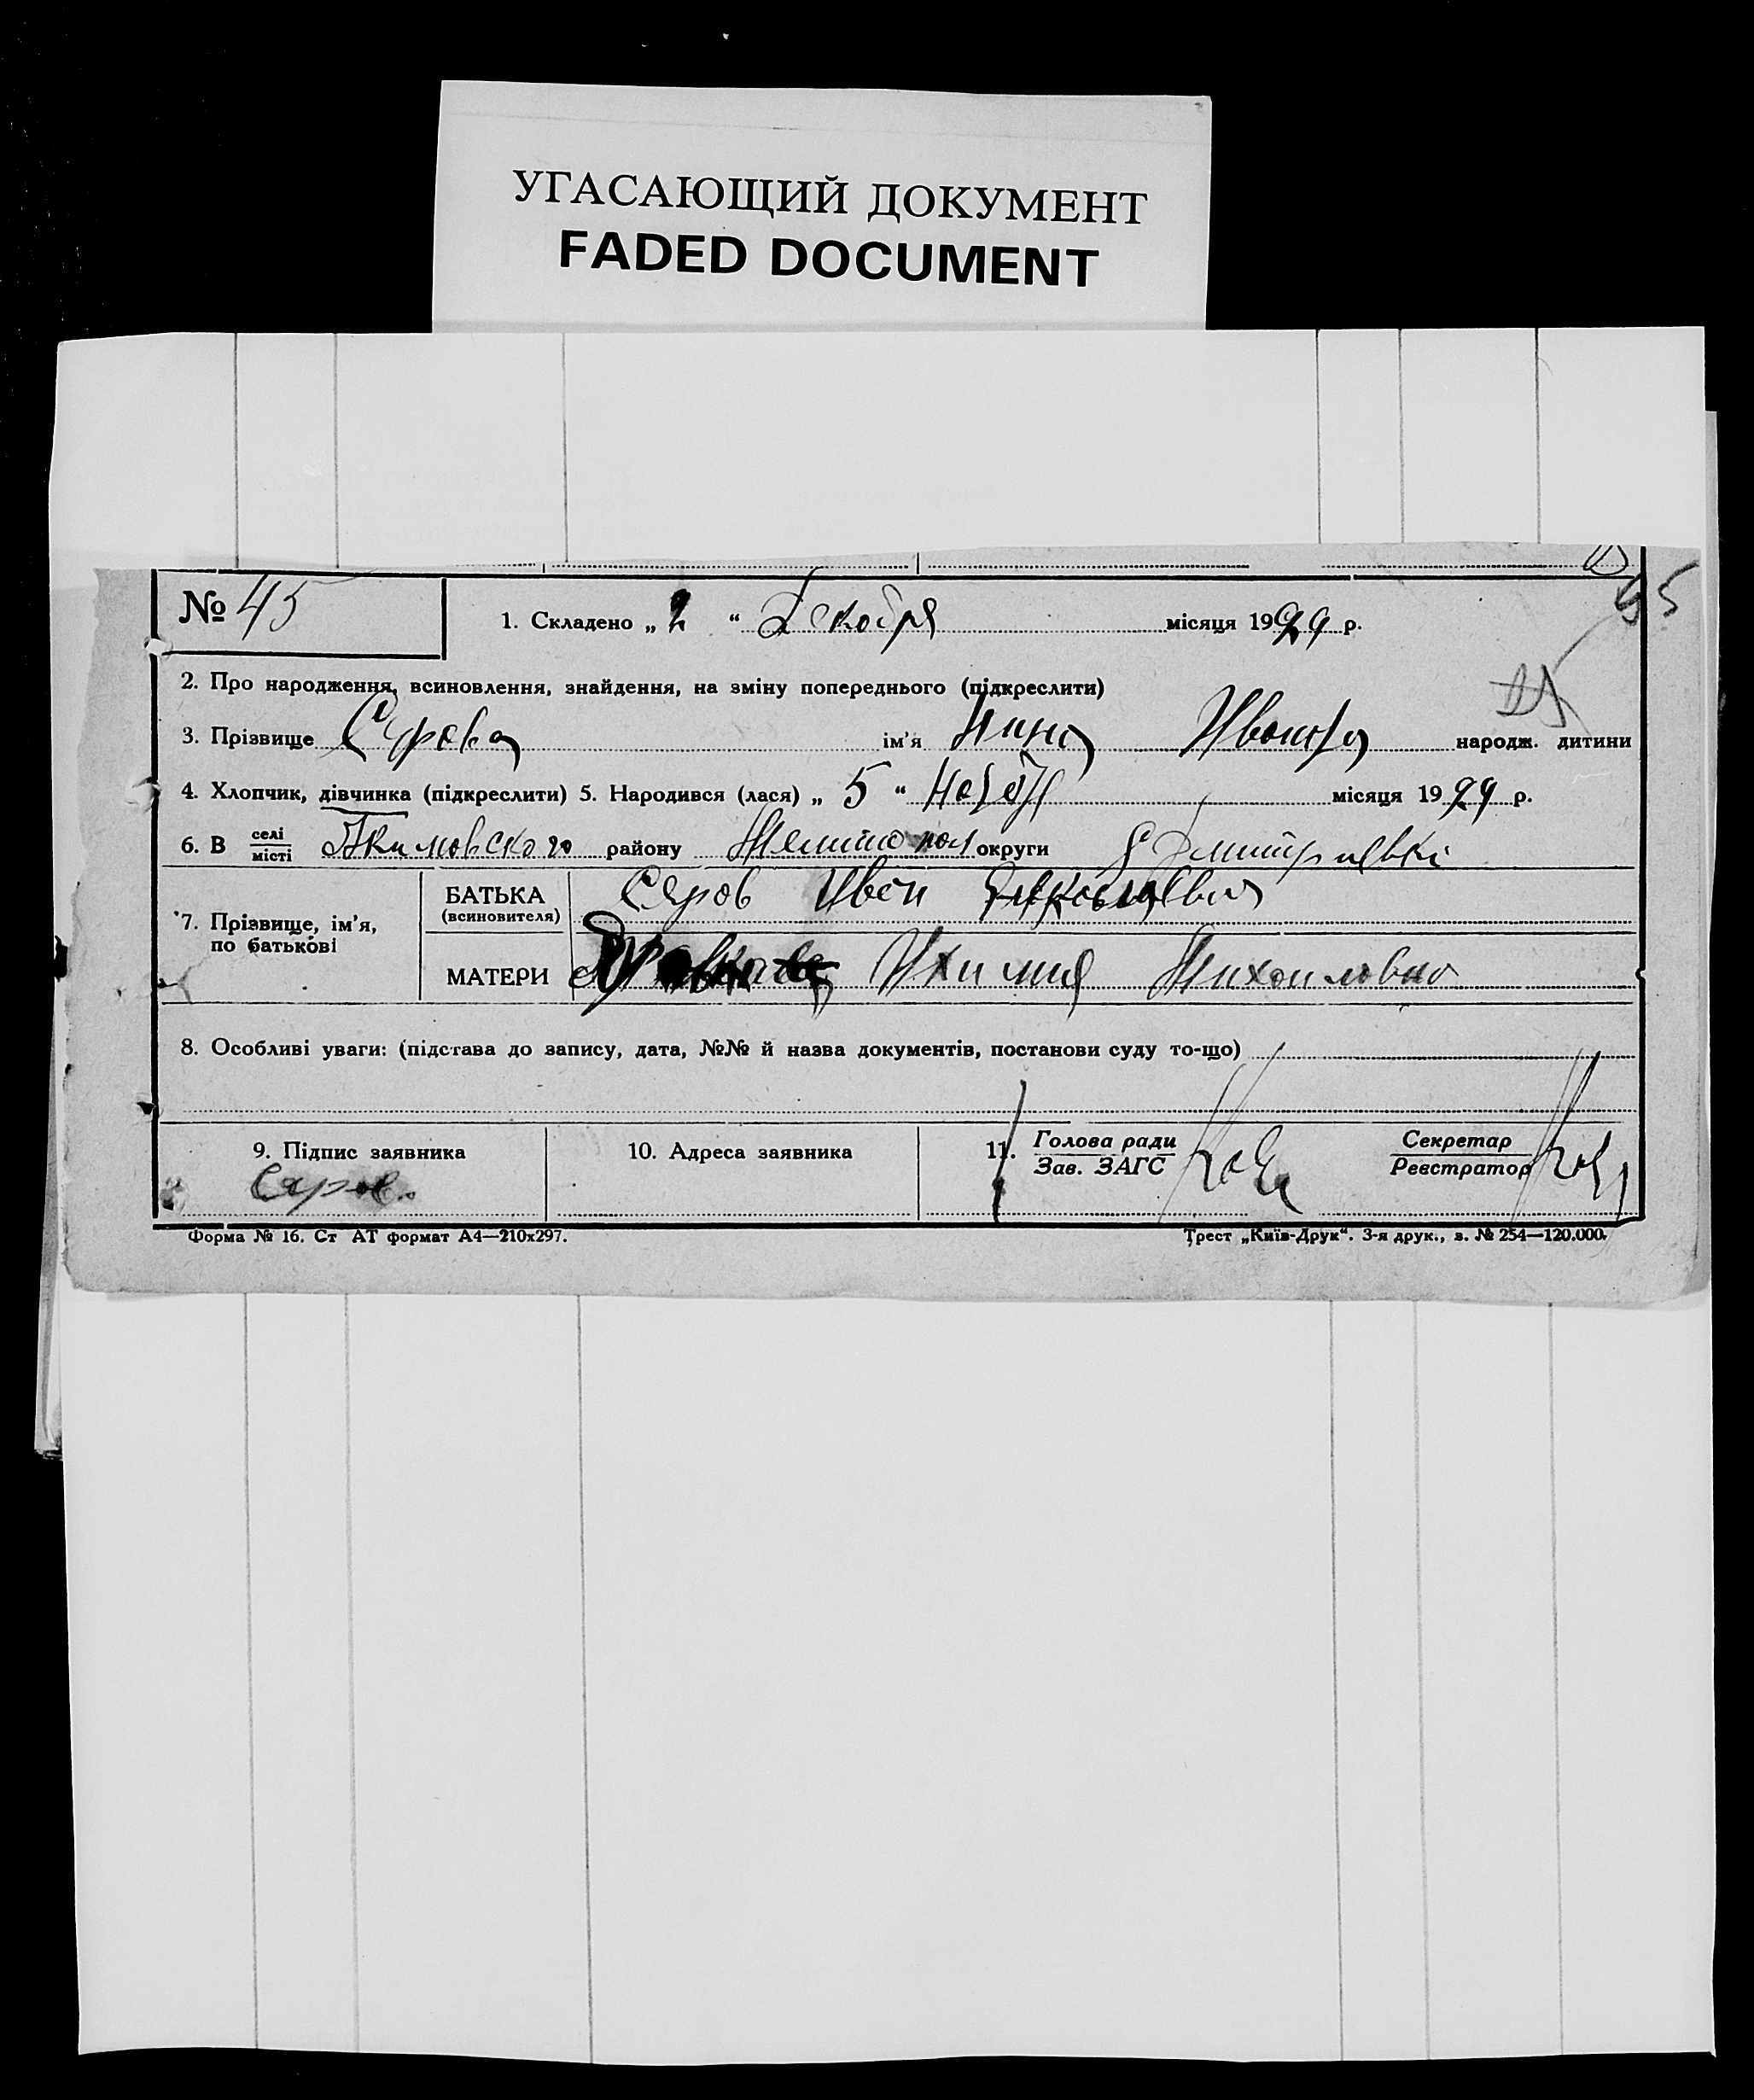 УГАСАЮЩИЙ ДОКУМЕНТ
FADED DOCUMENT
№ 45
1. Складено „ 2 “ Декабря місяця 1929 р.
2. Про народження, всиновлення, знайдення, на зміну попереднього (підкреслити)
3. Прізвище Серова ім'я Нина народж. дитини
4. Хлопчик, дівчинка (підкреслити) 5. Народився (лася) „ 5 “ Ноября місяця 1929 р.
6. В селі / місті Акимовского району Мелитопол округи
7. Прізвище, ім'я, по батькові
БАТЬКА (всиновителя) Серов Иван
МАТЕРИ Михаиловна
8. Особливі уваги: (підстава до запису, дата, №№ й назва документів, постанови суду то-що)
9. Підпис заявника
Серов
10. Адреса заявника
11. Голова ради / Зав. ЗАГС
Секретар / Реєстратор
Форма № 16. Ст АТ формат А4—210х297.
Трест „Київ-Друк“. 3-я друк., з. № 254—120.000.